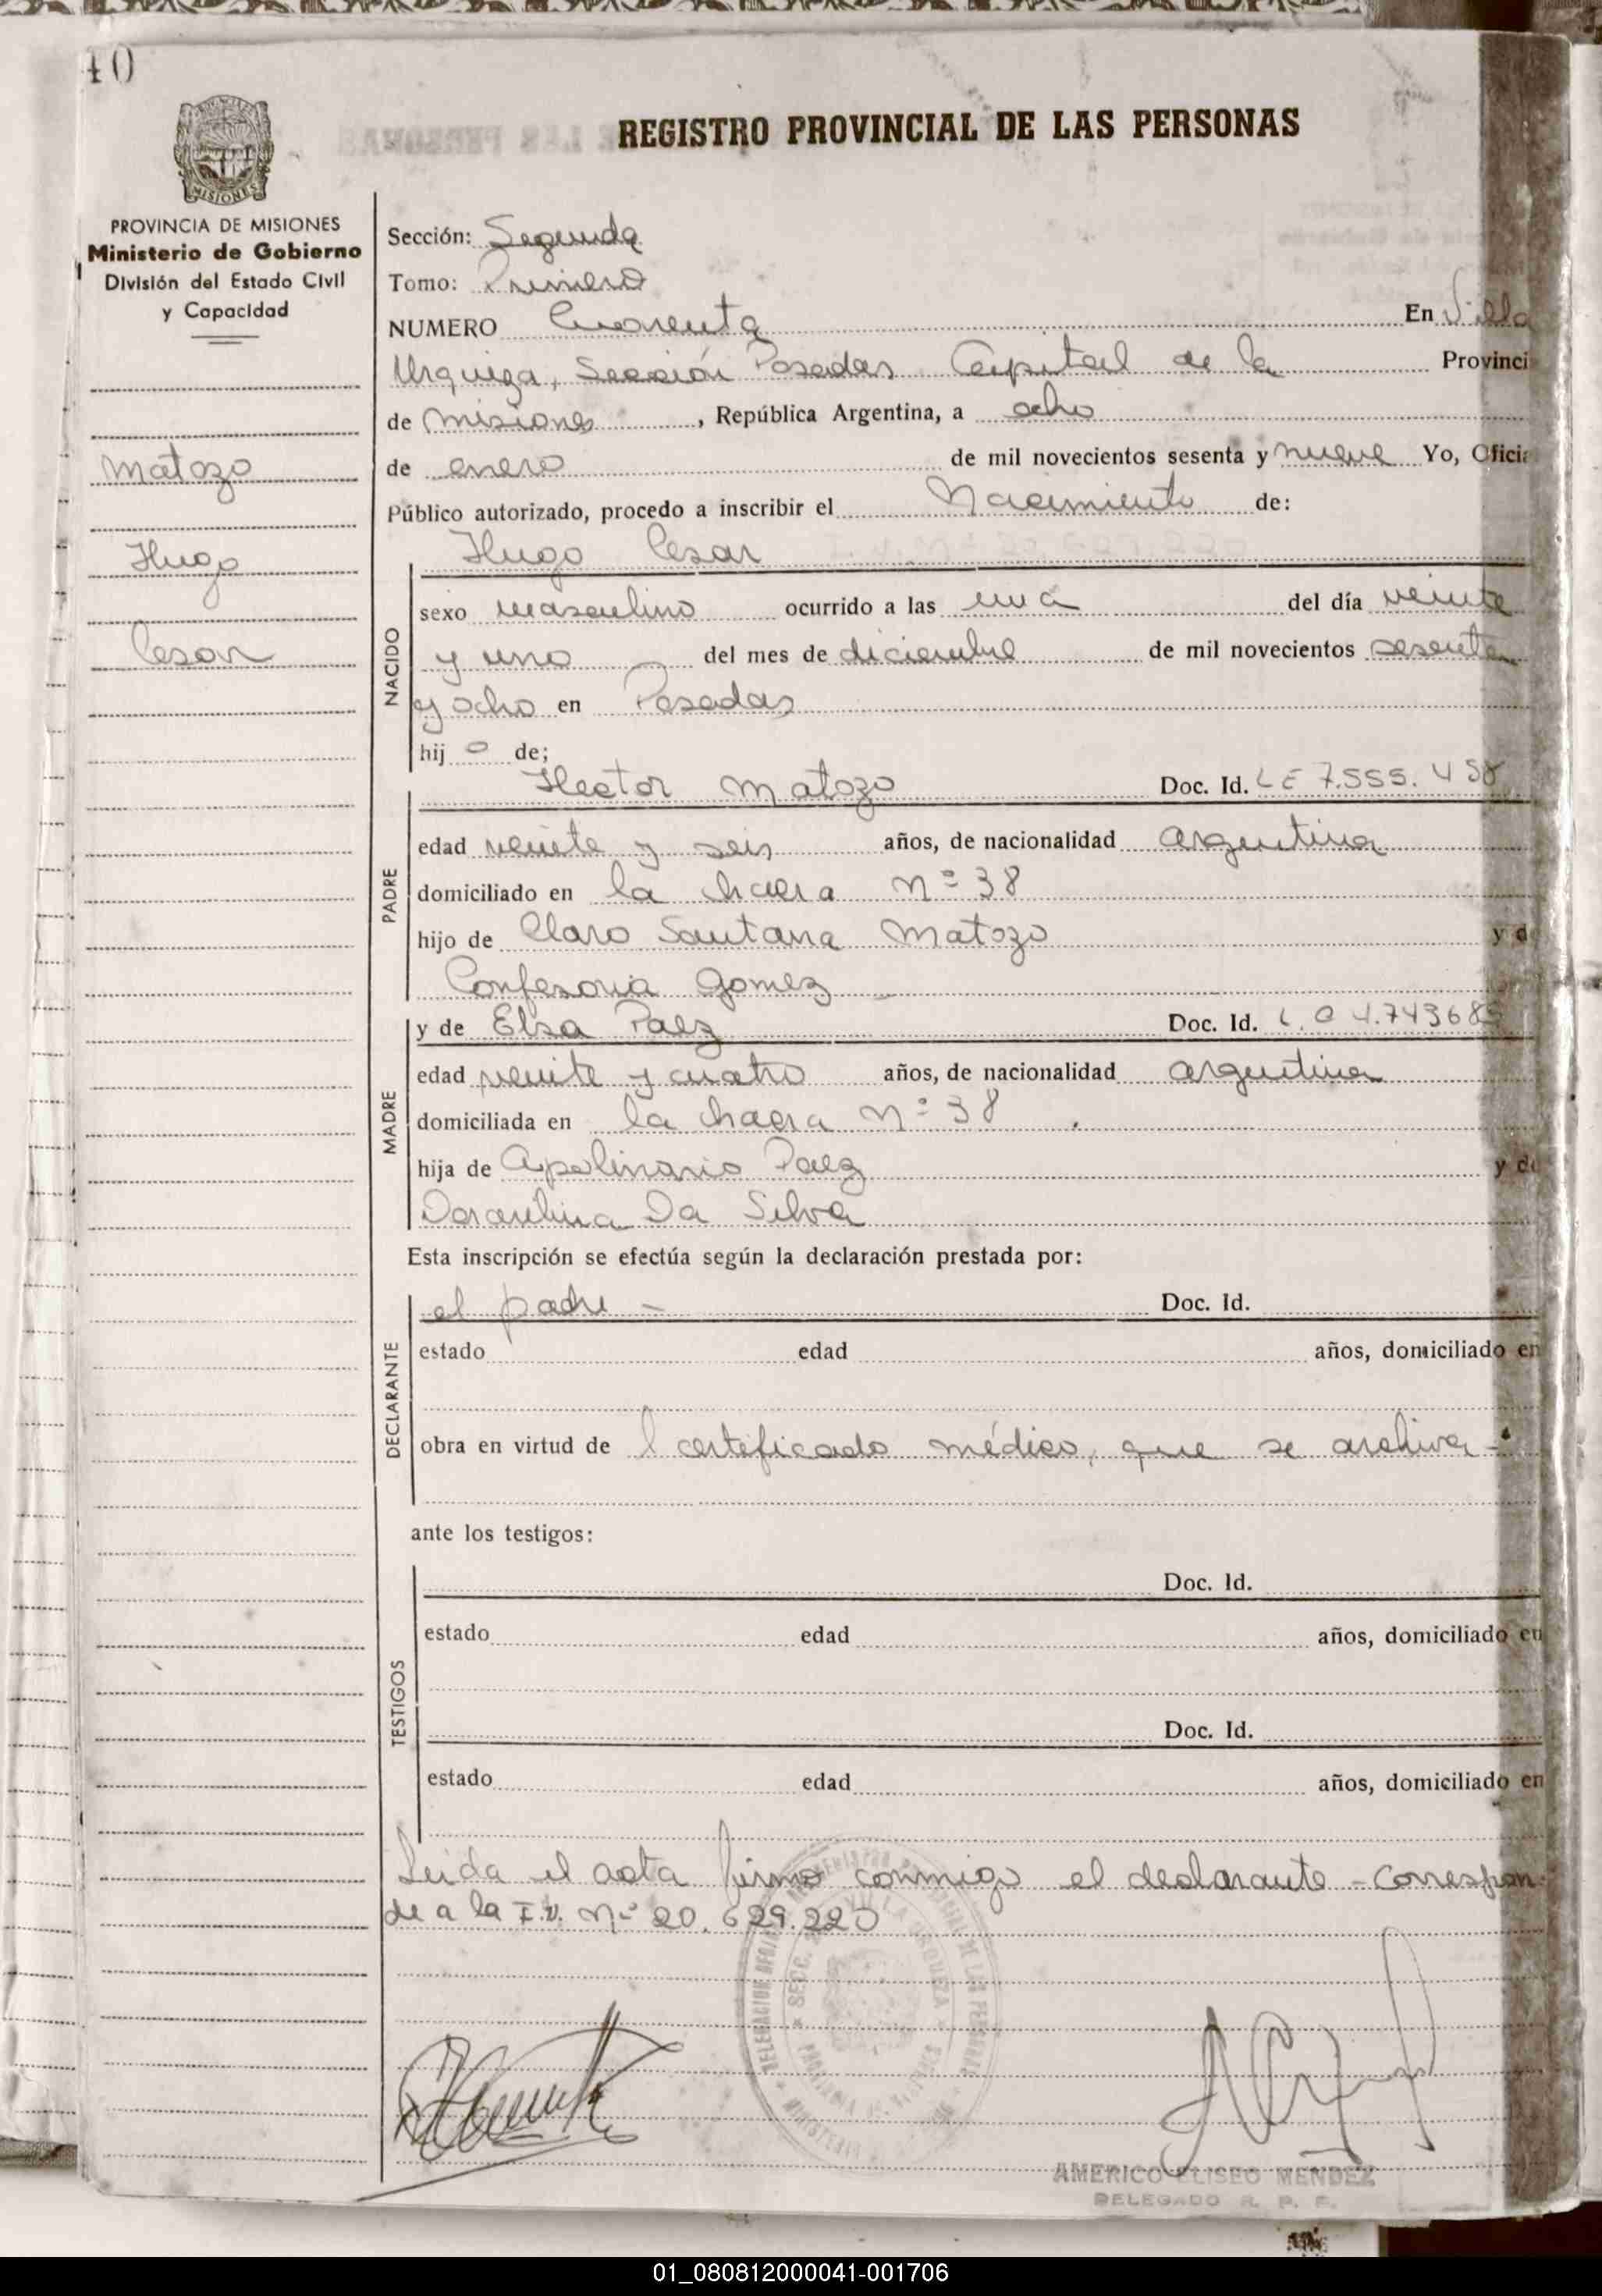 40
MISIONES
REGISTRO PROVINCIAL DE LAS PERSONAS
PROVINCIA DE MISIONES
Ministerio de Gobierno
División del Estado Civil
y Capacidad
Matozo
Hugo
Cesar
Sección: Segunda
Tomo: Primero
NUMERO Cuarenta En Villa
Urquiza, Sección Posadas Capital de la Provinci
de Misiones, República Argentina, a ocho
de enero de mil novecientos sesenta y nueve Yo, Oficia
Público autorizado, procedo a inscribir el Nacimiento de:
Hugo Cesar
NACIDO
sexo masculino ocurrido a las una del día veinte
y uno del mes de diciembre de mil novecientos sesenta
y ocho en Posadas
hij o de;
Hector Matozo Doc. Id. LE 7.555.458
PADRE
edad veinte y seis años, de nacionalidad argentina
domiciliado en la chacra Nº 38
hijo de Claro Santana Matozo y de
Confesoria Gomez
y de Elsa Paez Doc. Id. L.C 4.743685
MADRE
edad veinte y cuatro años, de nacionalidad argentina
domiciliada en la chacra Nº 38
hija de Apolinario Paez y de
Da Silva
Esta inscripción se efectúa según la declaración prestada por:
el padre - Doc. Id.
DECLARANTE
estado edad años, domiciliado en
obra en virtud de l certeficado médico, que se archiva-
ante los testigos:
Doc. Id.
TESTIGOS
estado edad años, domiciliado en
Doc. Id.
estado edad años, domiciliado en
Leida el acta firma conmigo el declarante - Correspon-
de a la I.D. Nº 20.629.220
AMERICO ELISEO MENDEZ
DELEGADO R. P. P.
01_080812000041-001706